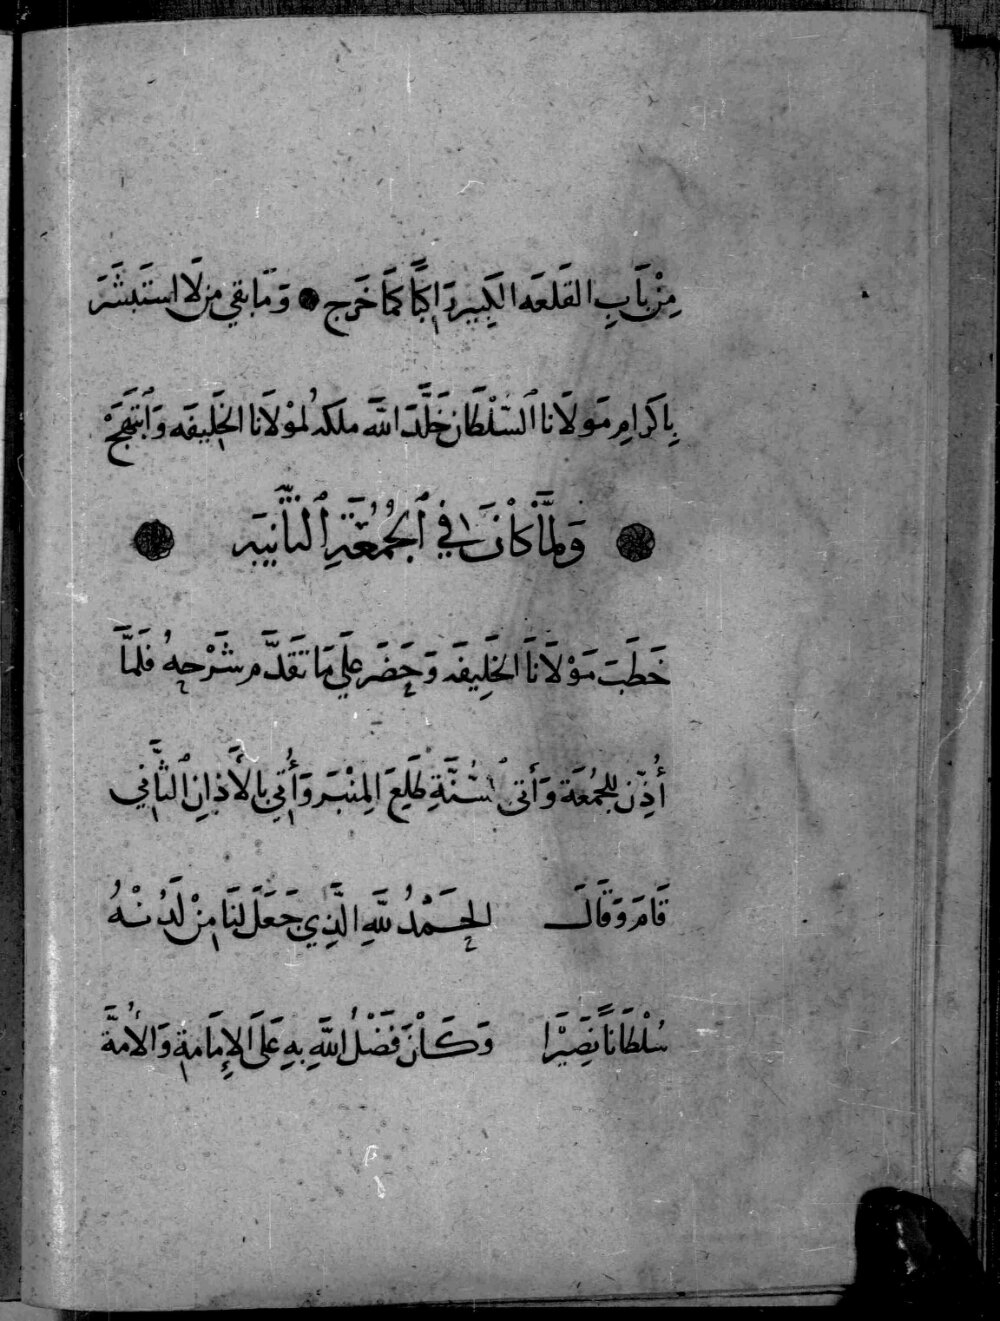 مِنْ بَابِ القَلعَه الكَبِير رَاكبًا كمَا خَرج وَمَا بقي من لَا استَبشَرَ
بِاكرَامِ مَولَانا ٱلسُّلْطَان خَلَّدَ اللَّه ملكه لموْلَانا الخَلِيفَه وَٱبتَهَجْ
وَلَمَّا كَانَ في ٱلجُمُعَةِ ٱلثَّانِيَه
خَطَبَ مَوْلَانَا الخَلِيفَه وَحَضَر علَي مَا تقَدَّم شَرْحهُ فلَمَّا
أُذِّن للجُمُعَة وَأتى ٱلسُّنَّةِ طَلِعَ المِنْبَر وَأُتِي بالأَذانِ ٱلثَّاني
قَامَ وَقَالَ الحَمْدُ للَّهِ الَّذِي جَعَلَ لنَا مِنْ لَدُنْهُ
سُلْطَانًا نَصِيْرَا وَكَانَ فَضْلُ اللَّهِ بِهِ عَلَى الإِمَامَةِ وَالأُمَّة